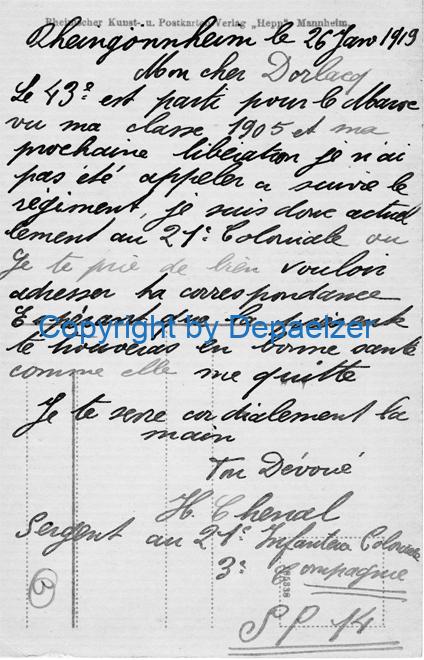 Rheinischer Kunst- u. Postkarten-Verlag „Hepp" Mannheim.
Rheingönnheim le 26 Janv 1919
Mon cher Dorlacq
Le 43e est parti pour le Maroc
vu ma classe 1905 et ma
prochaine libération je n'ai
pas été appeler a suivre le
régiment, je suis donc actuel
lement au 21e Coloniale ou
Je te prie de bien vouloir
adresser ta correspondance
Espérant que la présente
te trouveras en bonne santé
comme elle me quitte
Je te serre cordialement la
main
Ton Dévoué
H. Chenal
Sergent au 21e Infanterie Coloniale
3e Compagnie
SP 14
Copyright by Depaelzer